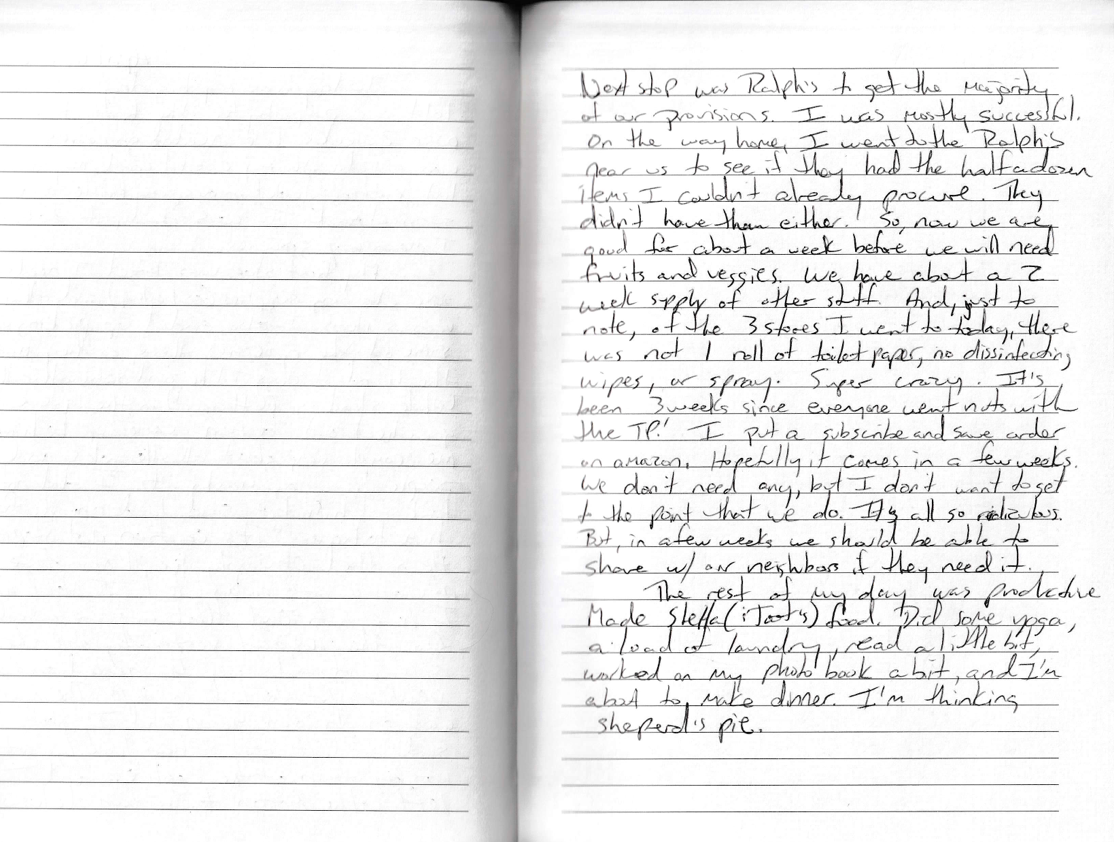 Next stop was Ralph's to get the majority
of our provisions. I was mostly successful.
On the way home, I went to the Ralph's
near us to see if they had the half a dozen
items I couldn't already procure. They
didn't have them either. So, now we are
good for about a week before we will need
fruits and veggies. We have about a 2
week spply of other stuff. And, just to
note, of the 3 stores I went to today, there
was not 1 roll of toilet paper, no dissinfecting
wipes, or spray. Super crazy. It's
been 3 weeks since everyone went nuts with
the TP! I put a subscribe and save order
on amazon. Hopefully it comes in a few weeks.
We don't need any, but I don't want to get
to the point that we do. It's all so ridiculous.
But, in a few weeks we should be able to
share w/ our neighbors if they need it.
The rest of my day was productive
Made Stella ( Toot's) food. Did some yoga,
a load of laundry, read a little bit,
worked on my photo book a bit, and I'm
about to make dinner. I'm thinking
sheperd's pie.